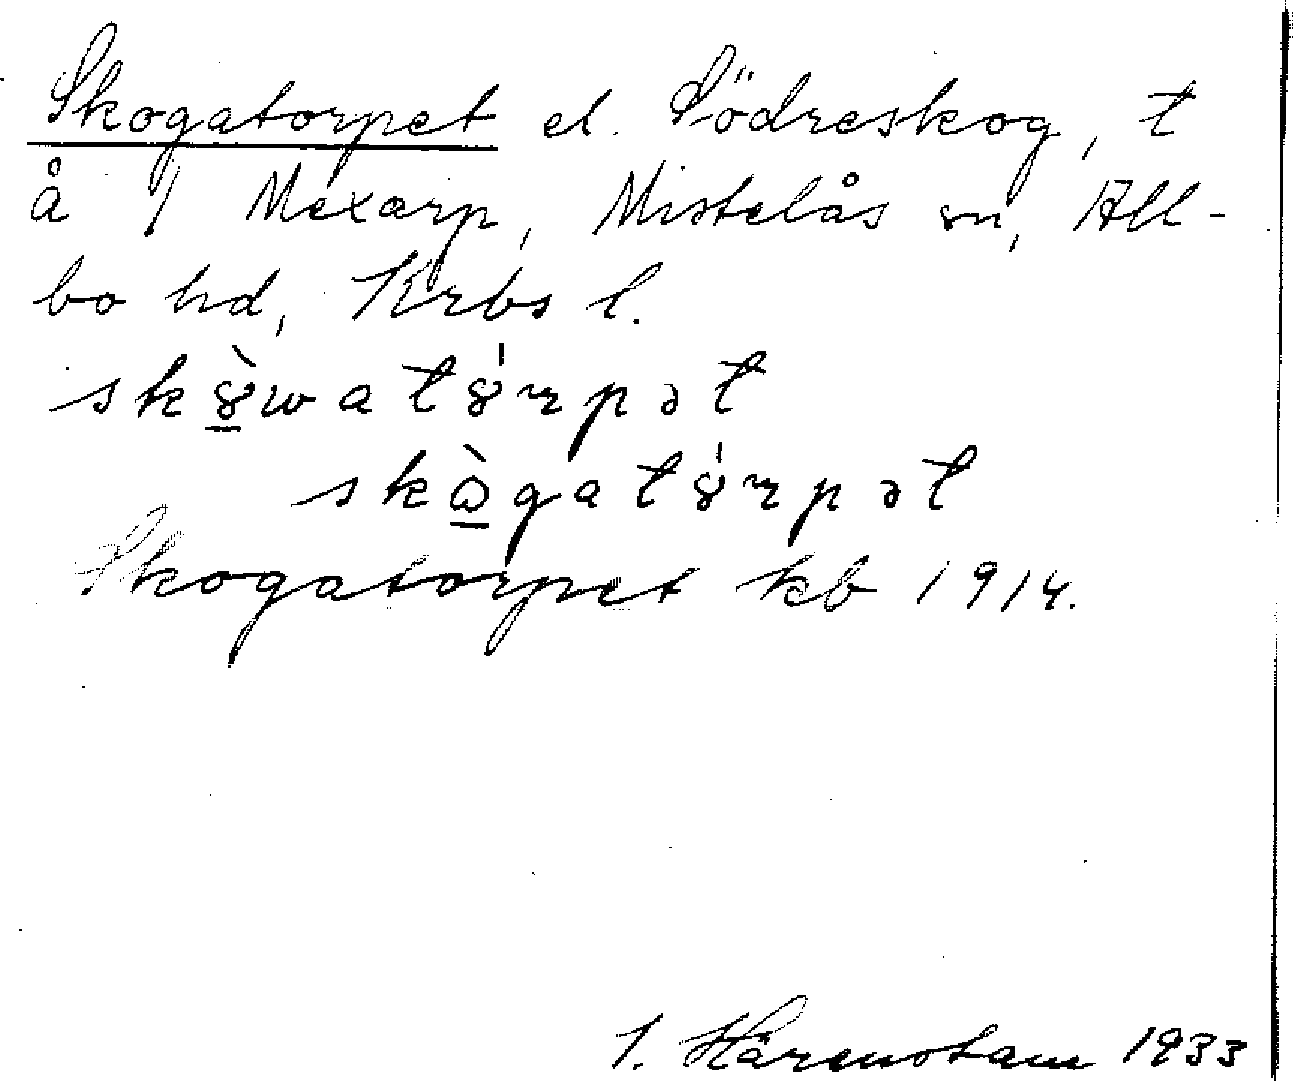 Skogatorpet el. Södreskog, t
å 1 Mexarp, Mistelås sn, All-
bo hd, Krbs l.
skȣ̀watȣ́rpət
skὼgatȣ́rpət
Skogatorpet kb 1914.
1933